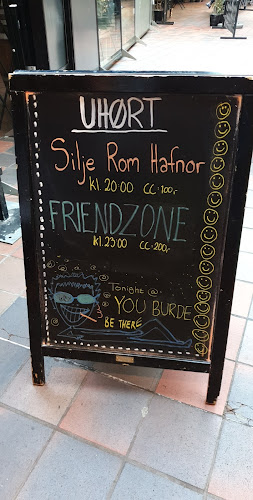 UHØRT
Silje Rom Hafnor
Kl. 20:00 CC:100,-
FRIENDZONE
Kl. 23:00 CC:200,-
Tonight @
YOU BURDE
BE THERE